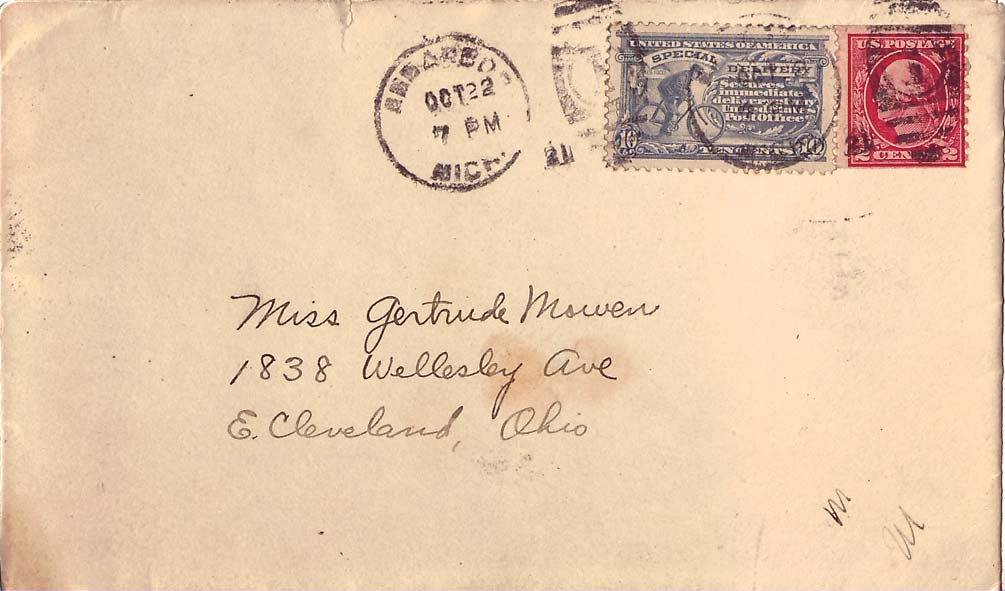 ANN ARBOR
OCT 22
7 PM
MICH.
21
UNITED STATES OF AMERICA
SPECIAL DELIVERY
Secures
immediate
delivery at any
United States
Post Office
10 TEN CENTS 10
U.S. POSTAGE
2 CENTS 2
21
Miss Gertrude Mowen
1838 Wellesley Ave
E. Cleveland, Ohio
M
M